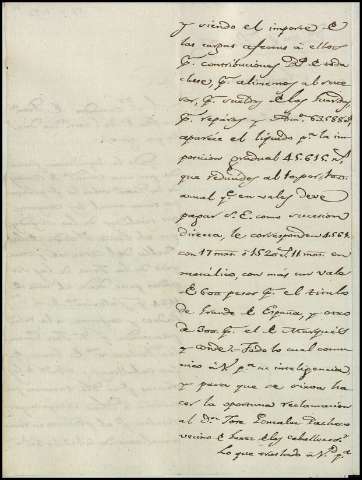 y siendo el importe de
las cargas afectas á ellos
pr. contribuciones Ds. de toda
clase, pr. alimentos al suce
sor, pr. sueldos de los Guardas
pr. reparos y
aparece el líquido pa. la im
posicion gradual 45.615 rs.
que reducidos al tipo
anual qe. en vales deve
pagar V.E. como succesion
directa, le corresponden 4561.
con 17 mrs. ó 1520 rs. 11 mrs. en
metálico, con más un vale
de 600 pesos pr. el titulo
de Grande de España, y otro
de 300 pr. el de Marqués
y Conde. Todo lo cual comu
nico á V. pa. su inteligencia
y para que se sirva ha
cer la oportuna reclamacion
al Dn. José Gonzalez Pacheco
vecino de Jerez de los Caballeros
Lo que traslado á V. pa.